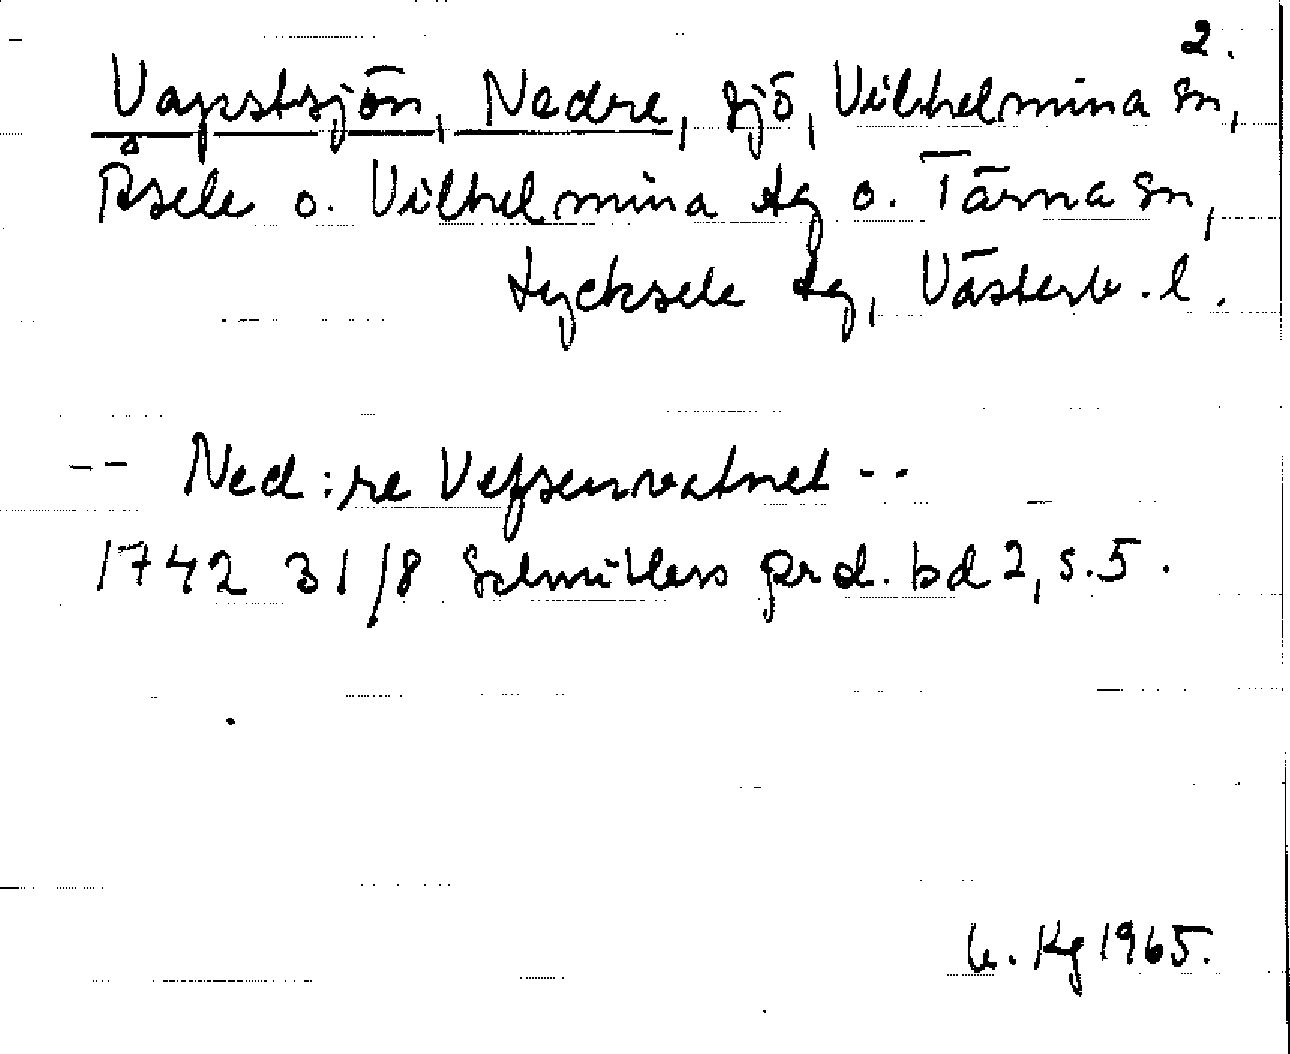 2.
Vapstsjön, Nedre, sjö, Vilhelmina sn,
Åsele o. Vilhelmina tg o. Tärna sn,
Lycksele tg, Västerb. l.
-- Ned:re Vefsenvatnet --
1742 31/8 Schnitlers prd. bd 2, s. 5.
Kg 1965.